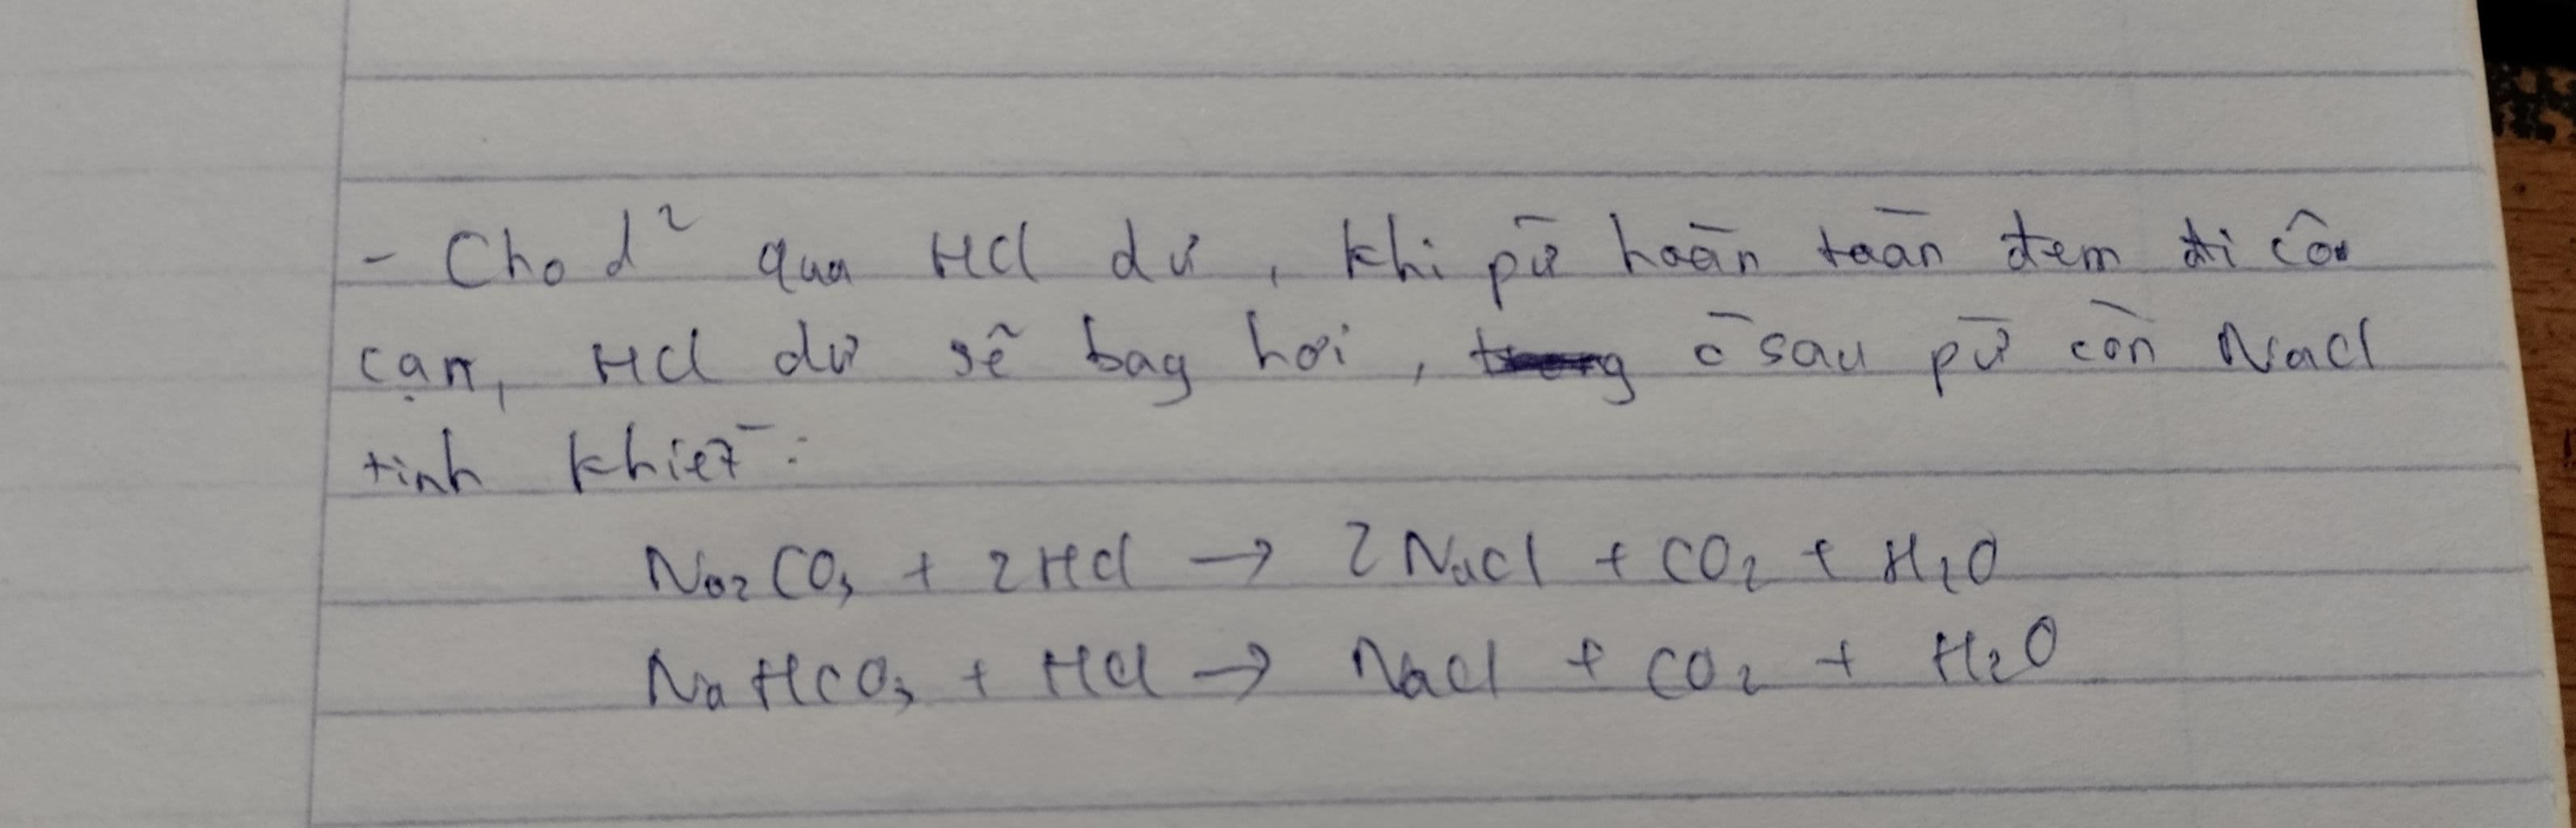 - Cho d² qua HCl dư, khi pứ hoàn toàn đem đi cô
cạn, HCl dư sẽ bay hơi, c̄ sau pứ còn NaCl
tinh khiết:
Na₂CO₃ + 2HCl → 2NaCl + CO₂ + H₂O
NaHCO₃ + HCl → NaCl + CO₂ + H₂O